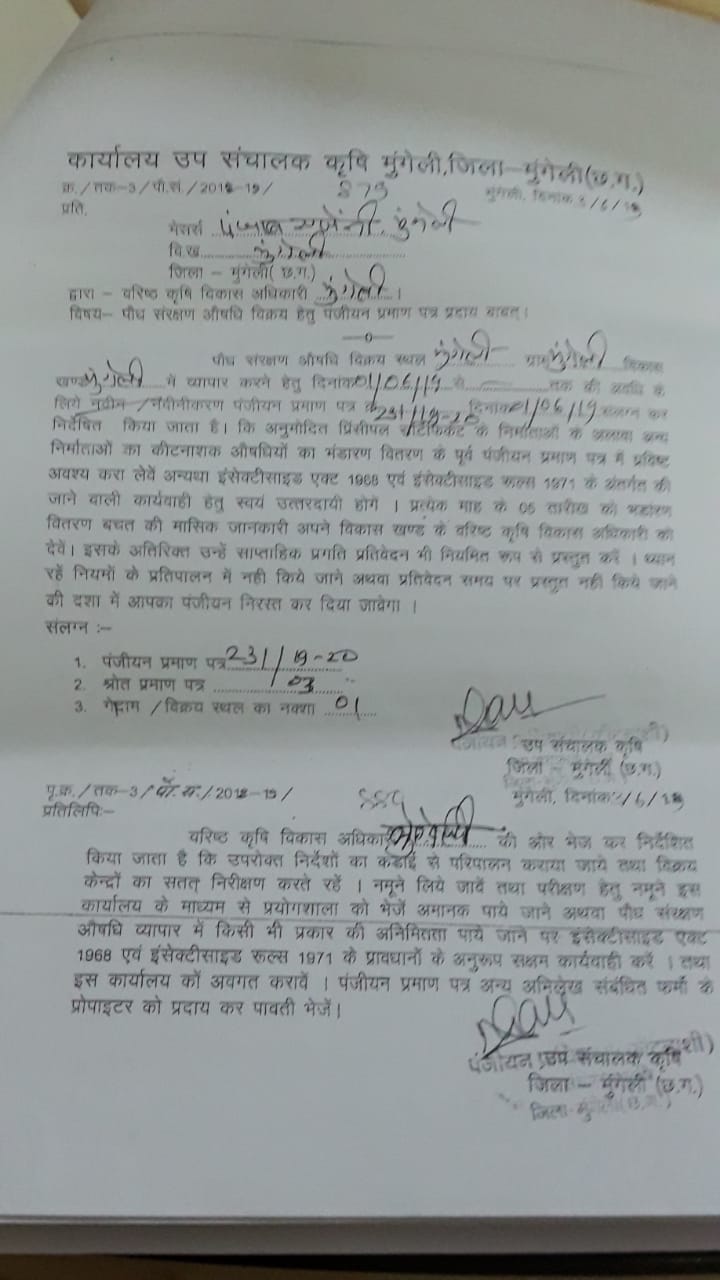 कार्यालय उप संचालक कृषि मुंगेली,जिला–मुंगेली(छ.ग.)
क्र./तक-3/पौ.सं./2018-19/ 879 मुंगेली, दिनांक /6/19
प्रति,
मेसर्स पंजाब एजेंसी, मुंगेली
वि.ख. मुंगेली
जिला – मुंगेली( छ.ग.)
द्वारा – वरिष्ठ कृषि विकास अधिकारी मुंगेली ।
विषय– पौध संरक्षण औषधि विक्रय हेतु पंजीयन प्रमाण पत्र प्रदाय बाबत्।
—0—
पौध संरक्षण औषधि विक्रय स्थल मुंगेली ग्राम मुंगेली विकास
खण्ड मुंगेली में व्यापार करने हेतु दिनांक 01/06/19 से ........ तक की अवधि के
लिये नवीन /नवीनीकरण पंजीयन प्रमाण पत्र क्र. 231/19-20 दिनांक 01/06/19 संलग्न कर
निर्देषित किया जाता है। कि अनुमोदित प्रिंसीपल सर्टिफिकेट के निर्माताओं के अलावा अन्य
निर्माताओं का कीटनाशक औषधियों का भंडारण वितरण के पूर्व पंजीयन प्रमाण पत्र में प्रविष्ट
अवश्य करा लेवें अन्यथा इंसेक्टीसाइड एक्ट 1968 एवं इंसेक्टीसाइड रूल्स 1971 के अंतर्गत की
जाने वाली कार्यवाही हेतु स्वयं उत्तरदायी होगें । प्रत्येक माह के 05 तारीख को भडांरण
वितरण बचत की मासिक जानकारी अपने विकास खण्ड के वरिष्ठ कृषि विकास अधिकारी को
देवें। इसके अतिरिक्त उन्हें साप्ताहिक प्रगति प्रतिवेदन भी नियमित रूप से प्रस्तुत करें । ध्यान
रहें नियमों के प्रतिपालन में नही किये जाने अथवा प्रतिवेदन समय पर प्रस्तुत नही किये जाने
की दशा में आपका पंजीयन निरस्त कर दिया जावेगा ।
संलग्न :–
1. पंजीयन प्रमाण पत्र 231/19-20
2. श्रोत प्रमाण पत्र 03
3. गोदाम /विक्रय स्थल का नक्शा 01
उप संचालक कृषि
जिला – मुंगेली (छ.ग.)
पृ.क्र./तक-3/पौ.सं./2018-19/ 880 मुंगेली, दिनांक /6/19
प्रतिलिपिः–
वरिष्ठ कृषि विकास अधिकारी मुंगेली की ओर भेज कर निर्देशित
किया जाता है कि उपरोक्त निर्देशों का कडाई से परिपालन कराया जाये तथा विक्रय
केन्द्रों का सतत् निरीक्षण करते रहें । नमूने लिये जावें तथा परीक्षण हेतु नमूने इस
कार्यालय के माध्यम से प्रयोगशाला को भेजें अमानक पाये जाने अथवा पौध संरक्षण
औषधि व्यापार में किसी भी प्रकार की अनिमितता पाये जाने पर इंसेक्टीसाइड एक्ट
1968 एवं इंसेक्टीसाइड रूल्स 1971 के प्रावधानों के अनुरूप सक्षम कार्यवाही करें । तथा
इस कार्यालय कों अवगत करावें । पंजीयन प्रमाण पत्र अन्य अभिलेख संबंधित फर्मो के
प्रोपाइटर को प्रदाय कर पावती भेजें।
उप संचालक कृषि
जिला – मुंगेली (छ.ग.)
जिला-मुंगेली(छ.ग.)